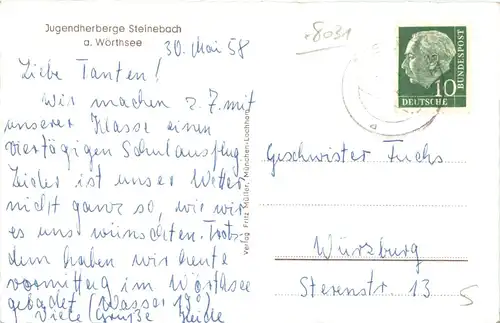 Jugendherberge Steinebach
a. Wörthsee
30. Mai 58
Liebe Tanten!
Wir machen z. Z. mit
unserer Klasse einen
viertägigen Schulausflug.
Leider ist unser Wetter
nicht ganz so, wie wir
es uns wünschten. Trotz-
dem haben wir heute
vormittag im Wörthsee
gebadet (Wasser 19°)
Viele Grüße Heide
Verlag Fritz Müller, München-Lochham
8031
10
DEUTSCHE
BUNDESPOST
Geschwister Fuchs
Würzburg
Sterenstr. 13
5